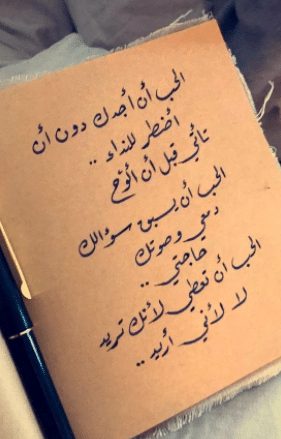 الحب أن أجدك دون أن
أضطر للنداء ..
تأتي قبل أن ألوّح
الحب أن يسبق سؤالك
دمعي وصوتك
حاجتي ..
الحب أن تعطي لأنك تريد
لا لأنني أريد ..